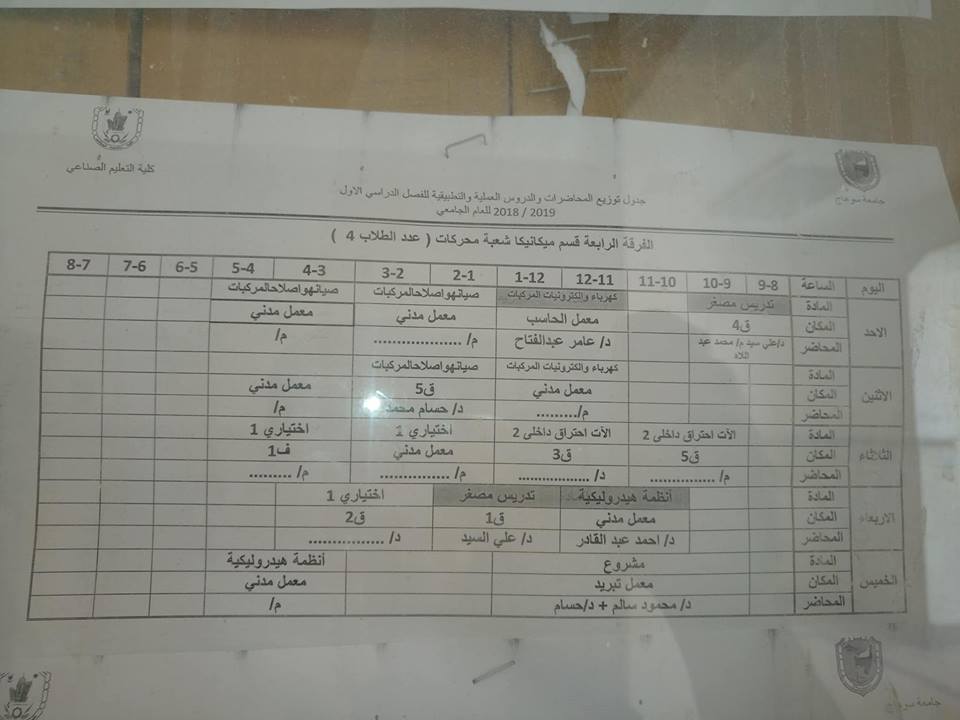 جامعة سوهاج
كلية التعليم الصناعي
جدول توزيع المحاضرات والدروس العملية والتطبيقية للفصل الدراسي الاول
للعام الجامعي 2018 / 2019
الفرقة الرابعة قسم ميكانيكا شعبة محركات ( عدد الطلاب 4 )
اليوم الساعة 9-8 10-9 11-10 12-11 1-12 2-1 3-2 4-3 5-4 6-5 7-6 8-7
الاحد
المادة تدريس مصغر كهرباء والكترونيات المركبات صيانهواصلاحالمركبات صيانهواصلاحالمركبات
المكان ق4 معمل الحاسب معمل مدني معمل مدني
المحاضر د/علي سيد م/ محمد عبد اللاه د/ عامر عبدالفتاح م/ .................... م/
الاثنين
المادة كهرباء والكترونيات المركبات صيانهواصلاحالمركبات
المكان معمل مدني ق5 معمل مدني
المحاضر م/......... د/ حسام محمد م/
الثلاثاء
المادة الآت احتراق داخلى 2 الآت احتراق داخلى 2 اختياري 1 اختياري 1
المكان ق5 ق3 معمل مدني ف1
المحاضر م/ ............... د/ .................. م/ ................ م/ .........
الاربعاء
المادة أنظمة هيدروليكية تدريس مصغر اختياري 1
المكان معمل مدني ق1 ق2
المحاضر د/ احمد عبد القادر د/ علي السيد د/ ................
الخميس
المادة مشروع أنظمة هيدروليكية
المكان معمل تبريد معمل مدني
المحاضر د/ محمود سالم + د/حسام م/
جامعة سوهاج